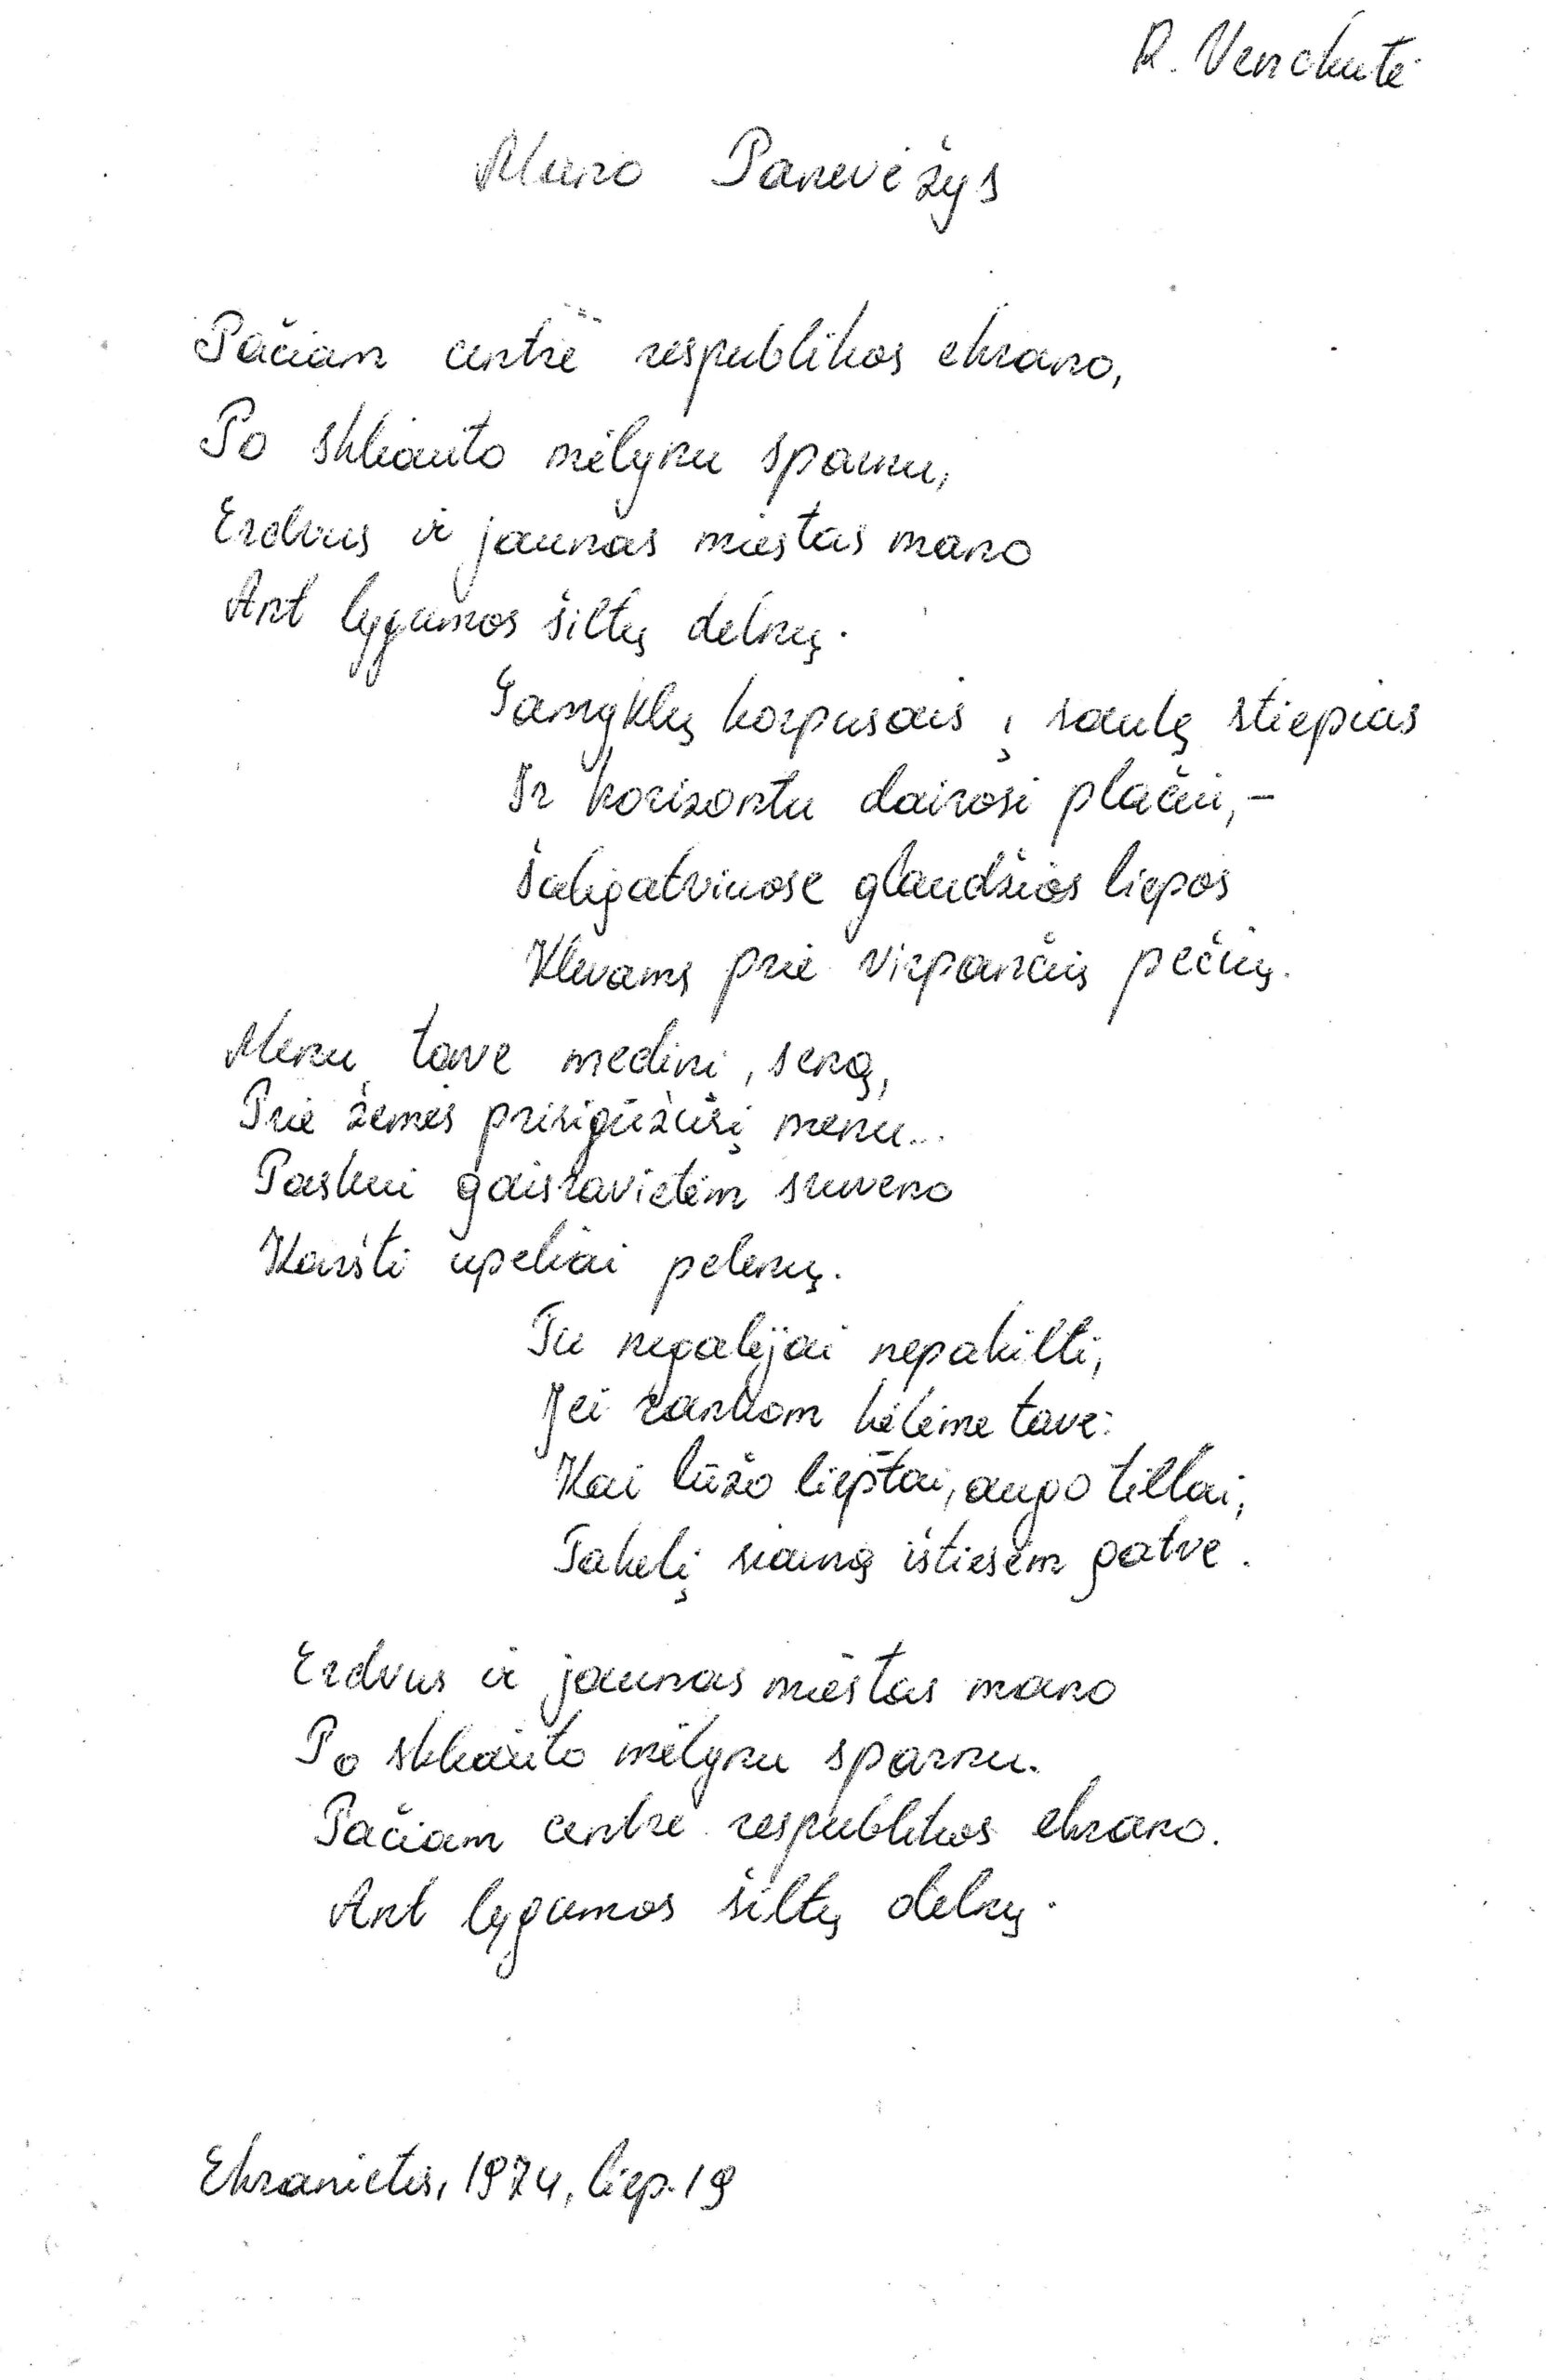 R. Venckutė
Mano Panevėžys
Pačiam centre respublikos ekrano,
Po skliauto mėlynu sparnu,
Erdvus ir jaunas miestas mano
Ant lygumos šiltų delnų.
Gamyklų korpusais į saulę stiepias
Ir horizontu dairosi plačiu, –
Šaligatviuose glaudžios liepos
Klevams prie virpančių pečių.
Menu tave medinį, seną,
Prie žemės prisigūžusį menu...
Paskui gaisravietėm sruveno
Karšti upeliai pelenų.
Tu negalėjai nepakilti,
Jei rankom kėlėme tave:
Kai lūžo lieptai, augo tiltai,
Takelį siaurą ištiesėm gatve.
Erdvus ir jaunas miestas mano
Po skliauto mėlynu sparnu.
Pačiam centre respublikos ekrano.
Ant lygumos šiltų delnų.
Ekranietis, 1974, liep. 19